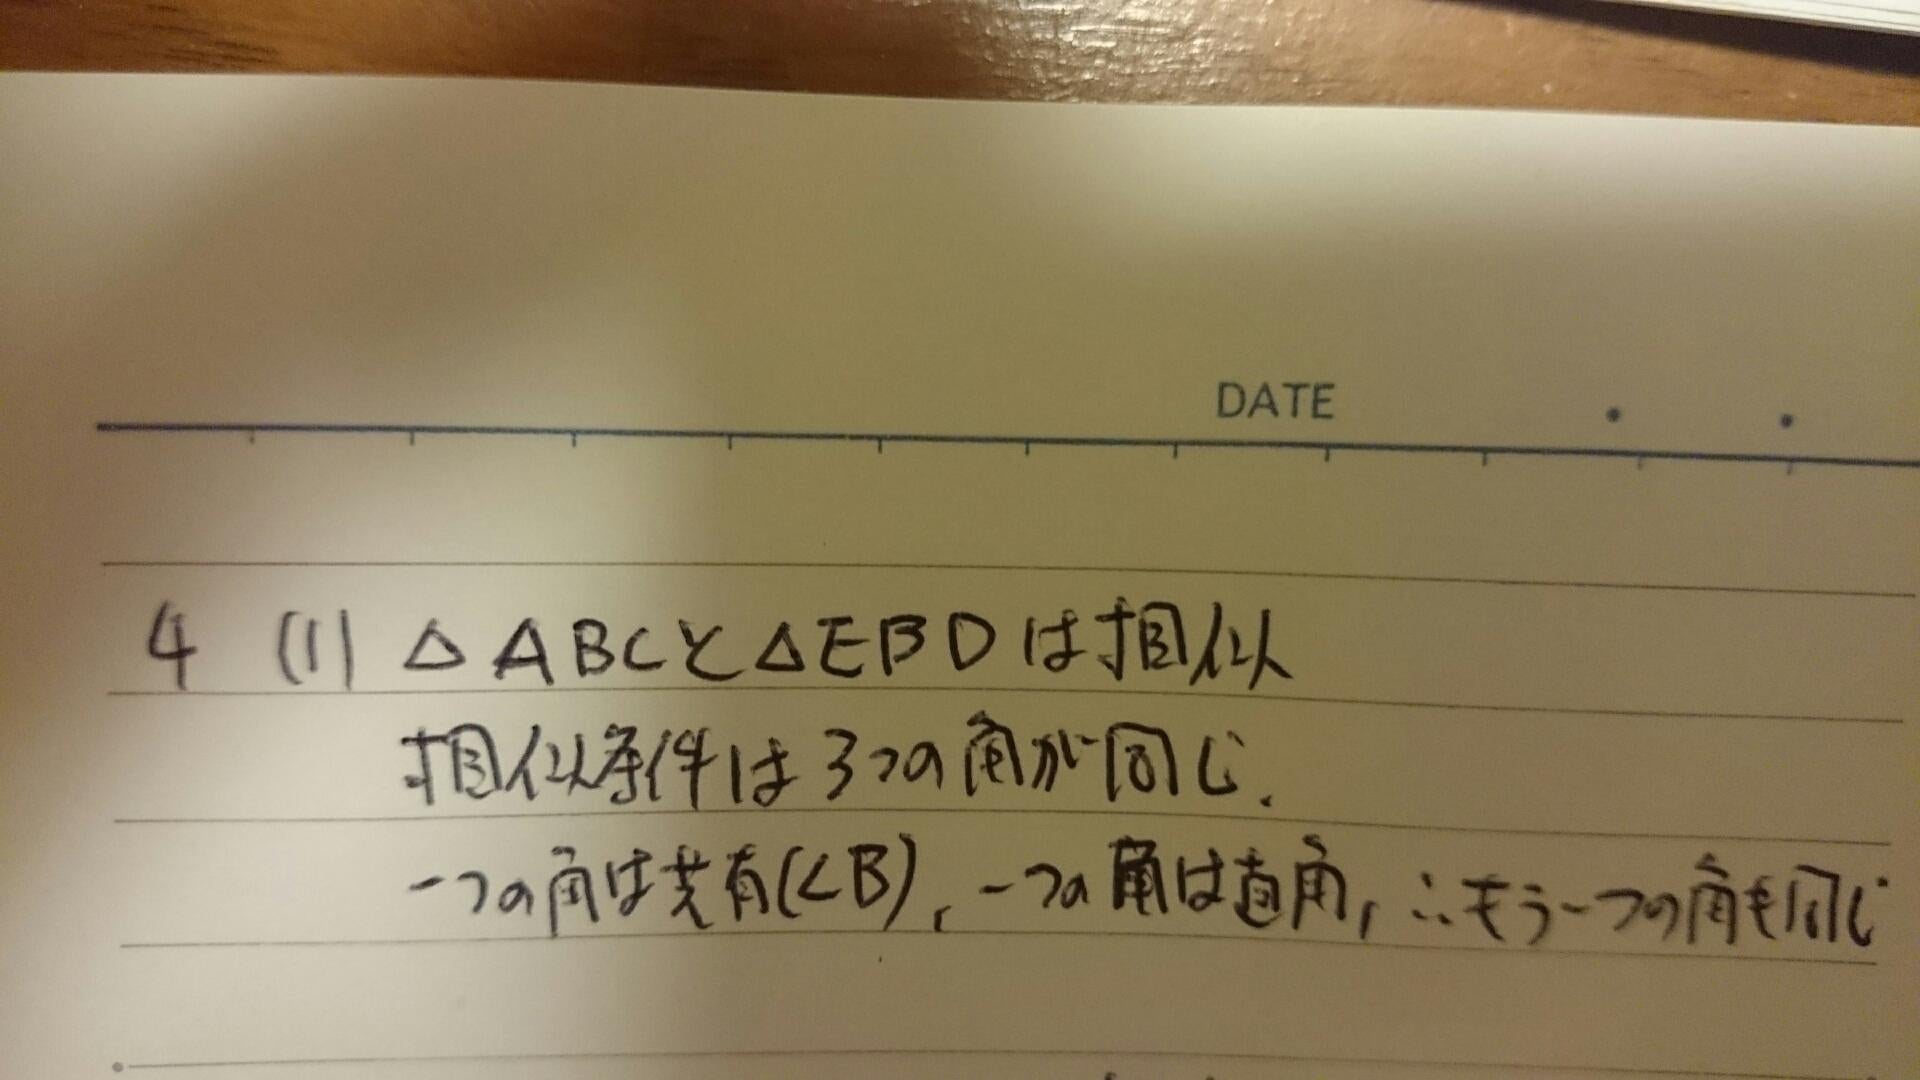 DATE . .
4 (1) △ABCと△EBDは相似
相似条件は3つの角が同じ.
一つの角は共有(∠B), 一つの角は直角, ∴もう一つの角も同じ